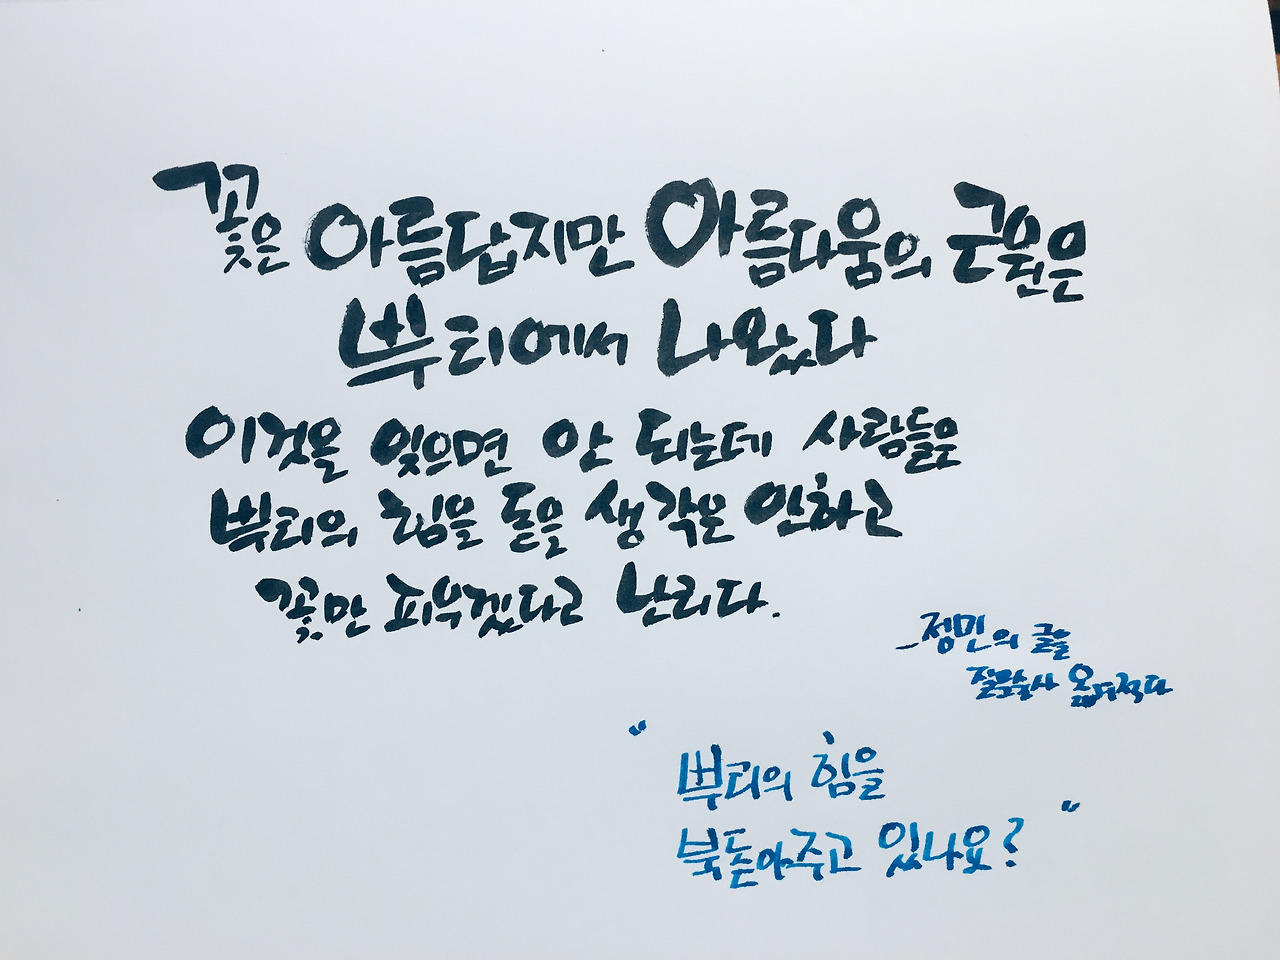 꽃은 아름답지만 아름다움의 근원은
뿌리에서 나왔다
이것을 잊으면 안 되는데 사람들은
뿌리의 힘을 돋을 생각은 안하고
꽃만 피우겠다고 난리다.
_정민의 글을
질문술사 옮겨적다
"뿌리의 힘을
북돋아주고 있나요?"